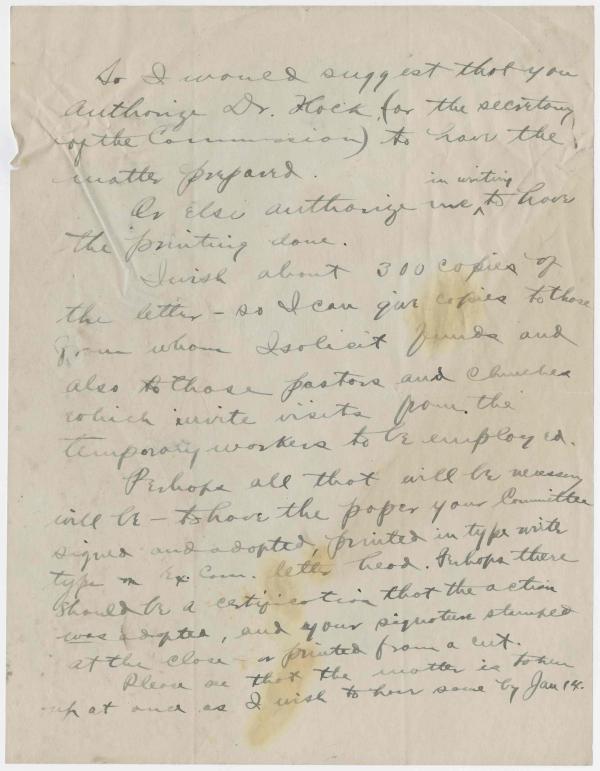 So I would suggest that you
Authorize Dr. Hock (or the secretary
of the Commission) to have the
matter prepared.
in writing
Or else authorize me ^ to have
the printing done.
I wish about 300 copies of
the letter - so I can give copies to those
from whom I solicit funds and
also to those pastors and churches
which invite visits from the
temporary workers to be employed.
Perhaps all that will be necessary
will be - to have the paper your Committee
signed and adopted, printed in type write
type on Ex. Com. letter head. Perhaps there
should be a certification that the action
was adopted, and your signature stamped
at the close - or printed from a cut.
Please see that the matter is taken
up at once as I wish to have same by Jan 14.